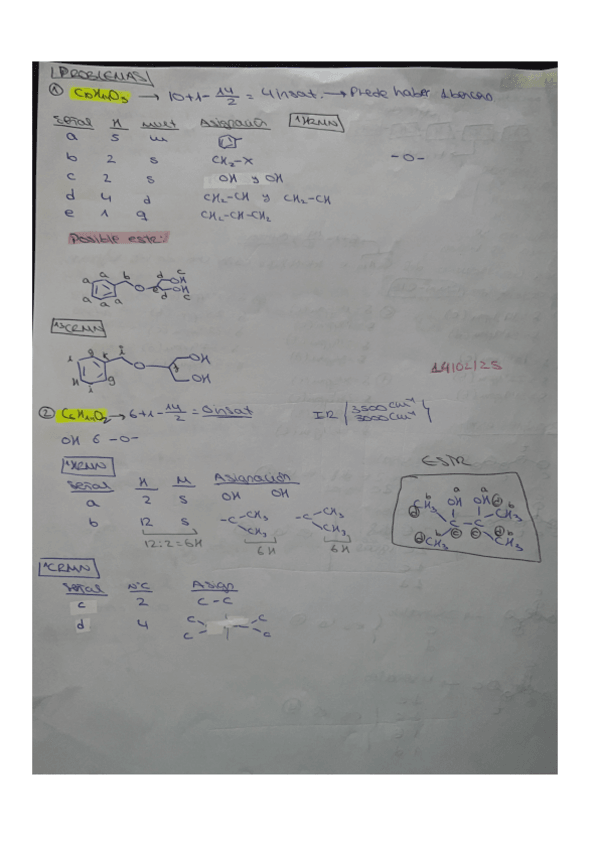 PROBLEMAS
① C10H14O3 → 10+1- 14/2 = 4 insat. → Puede haber 1 benceno
Señal H Mult Asignación ¹HRMN
a 5 m
b 2 s CH2-X -O-
c 2 s OH y OH
d 4 d CH2-CH y CH2-CH
e 1 q CH2-CH-CH2
Posible estr:
a a b d c OH
a O e OH
a a a d c
¹³CRMN
g k i OH
O j OH
g
14/02/25
② C6H14O2 → 6+1- 14/2 = 0 insat IR 3500 cm⁻¹
3000 cm⁻¹
OH ó -O-
¹HRMN ESTR
Señal H M Asignación
a 2 s OH OH
b 12 s -C CH3 CH3 -C CH3 CH3
12:2=6H 6H 6H
a a
b CH3 OH OH b CH3
d C-C d
c c
d CH3 b d CH3 b
¹³CRMN
Señal NºC Asign
c 2 C-C
d 4 C C C C